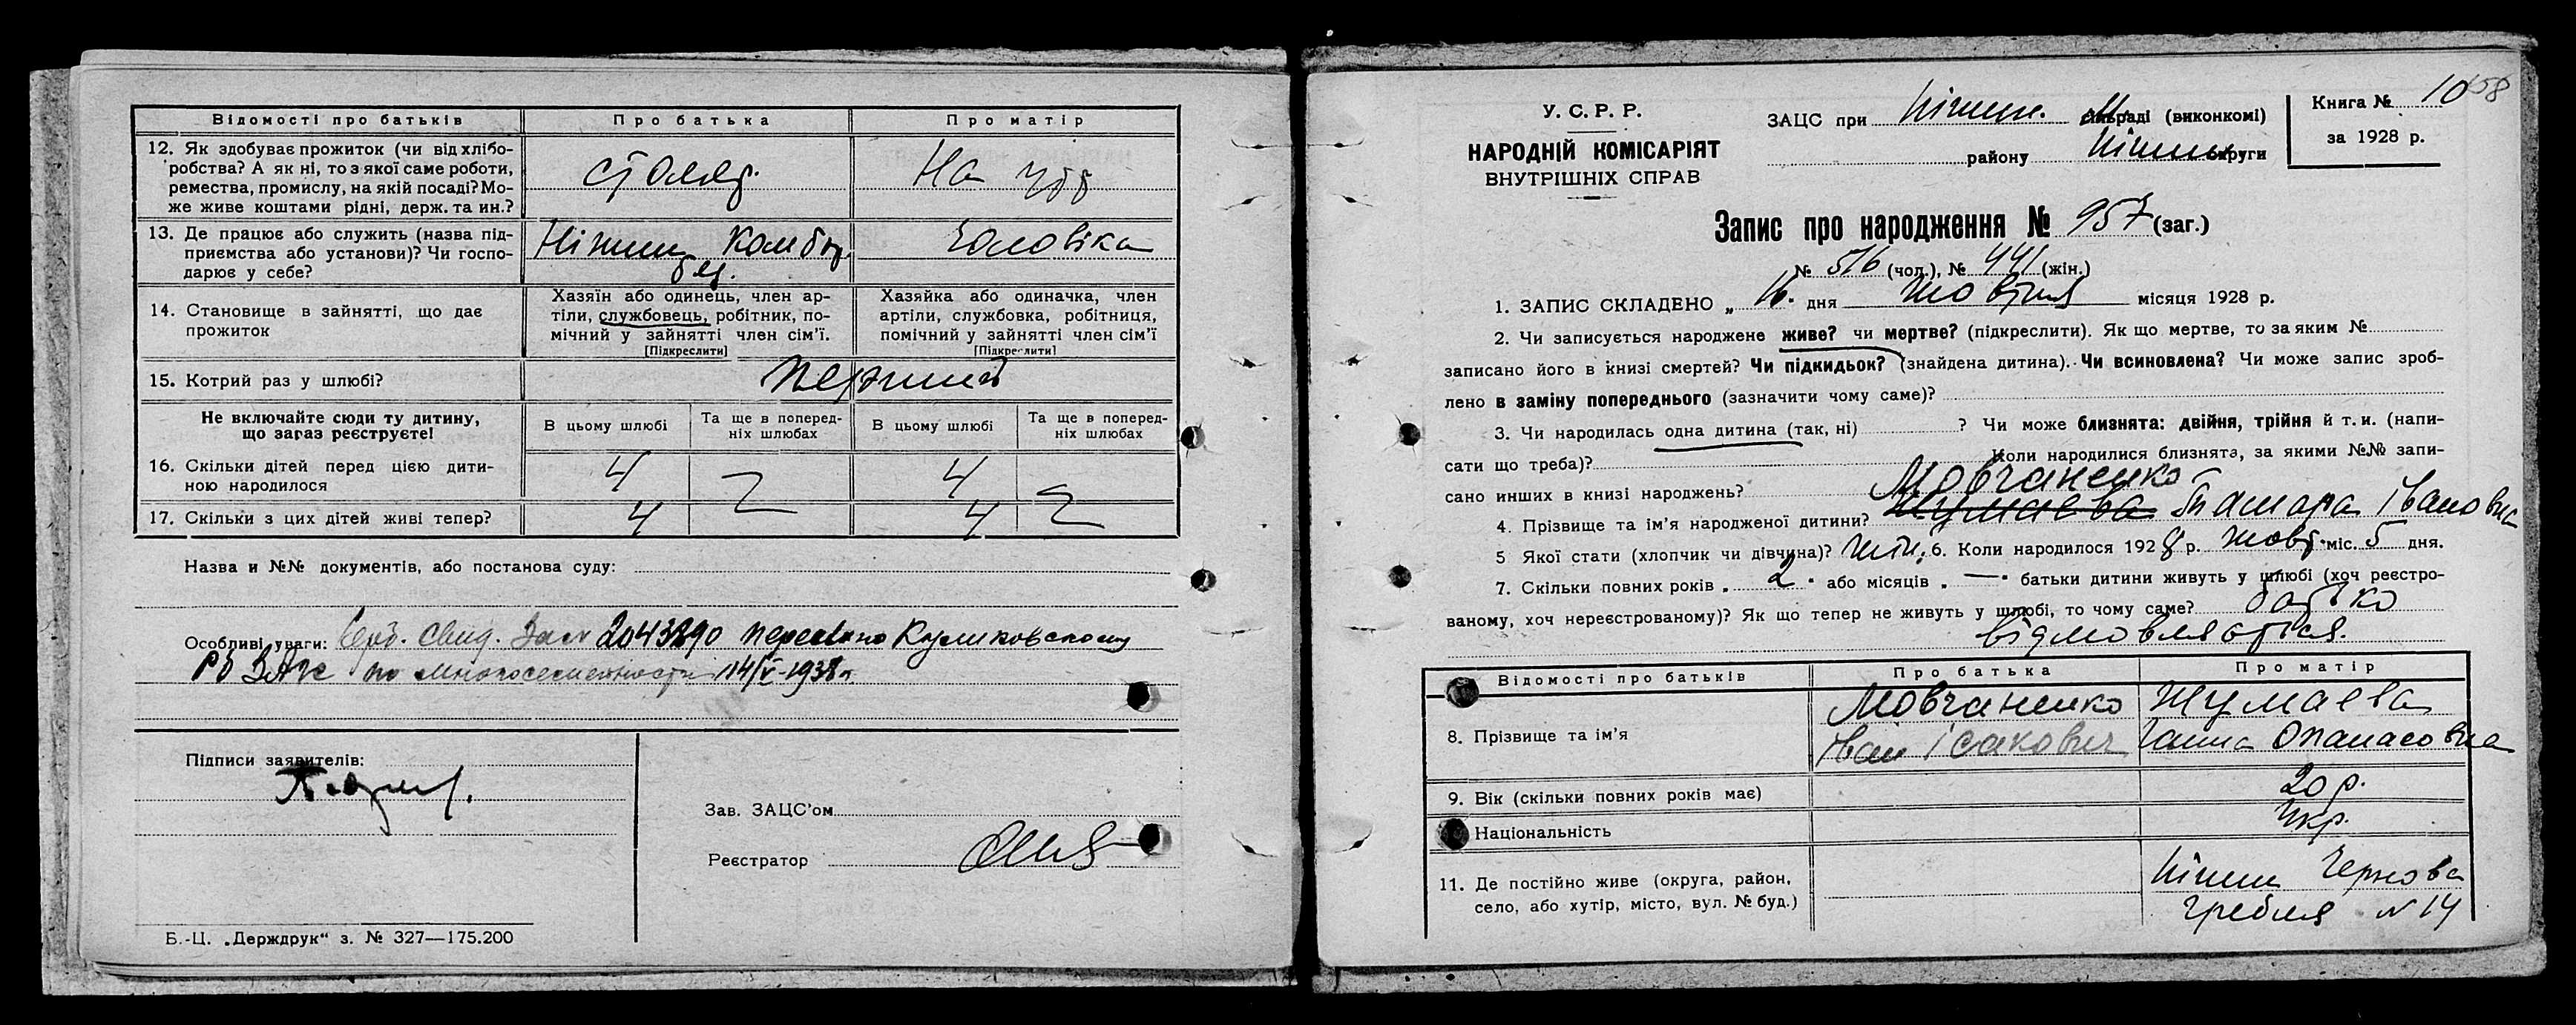 Відомості про батьків Про батька Про матір
12. Як здобуває прожиток (чи від хлібо-
робства? А як ні, то з якої саме роботи,
ремества, промислу, на якій посаді? Мо-
же живе коштами рідні, держ. та ин.?
столяр. На
13. Де працює або служить (назва під-
приємства або установи)? Чи госпо-
дарює у себе?
Ніжин чоловіка
14. Становище в зайнятті, що дає
прожиток
Хазяїн або одинець, член ар-
тіли, службовець, робітник, по-
мічний у зайнятті член сім'ї.
[Підкреслити]
Хазяйка або одиначка, член
артіли, службовка, робітниця,
помічний у зайнятті член сім'ї
[Підкреслити]
15. Котрий раз у шлюбі? перший
Не включайте сюди ту дитину,
що зараз реєструєте!
В цьому шлюбі
Та ще в поперед-
ніх шлюбах
В цьому шлюбі
Та ще в поперед-
ніх шлюбах
16. Скільки дітей перед цією дити-
ною народилося
4 4
17. Скільки з цих дітей живі тепер? 4 4
Назва и №№ документів, або постанова суду:
Особливі уваги: свид. 2043890 Куликовскому
Рб ЗАГС по многосемейности 14/V-1938 г.
Підписи заявителів:
Зав. ЗАЦС'ом
Реєстратор
Б.-Ц. „Держдрук“ з. № 327—175.200
У. С. Р. Р.
НАРОДНІЙ КОМІСАРІЯТ
ВНУТРІШНІХ СПРАВ
ЗАЦС при Ніжин. сільраді (виконкомі)
району Ніжин округи
Книга № 10
за 1928 р.
58
Запис про народження № 957 (заг.)
№ 516 (чол.), № 441 (жін.)
1. ЗАПИС СКЛАДЕНО „ 16. дня жовтня місяця 1928 р.
2. Чи записується народжене живе? чи мертве? (підкреслити). Як що мертве, то за яким №
записано його в книзі смертей? Чи підкидьок? (знайдена дитина). Чи всиновлена? Чи може запис зроб-
лено в заміну попереднього (зазначити чому саме)?
3. Чи народилась одна дитина (так, ні) ? Чи може близнята: двійня, трійня й т. и. (напи-
сати що треба)? Коли народилися близнята, за якими №№ запи-
сано инших в книзі народжень? Мовчаненко
4. Прізвище та ім'я народженої дитини? Жумаєва Тамара Івановна
5 Якої стати (хлопчик чи дівчина)? жін. 6. Коли народилося 1928 р. жовт. міс. 5 дня.
7. Скільки повних років „ 2 " або місяців „ — " батьки дитини живуть у шлюбі (хоч реєстро-
ваному, хоч нереєстрованому)? Як що тепер не живуть у шлюбі, то чому саме? батько
відмовляється.
Відомості про батьків Про батька Про матір
8. Прізвище та ім'я
Мовчаненко Жумаєва
Іван Ісакович Ганна Опанасовна
9. Вік (скільки повних років має) 20 р.
Національність Укр.
11. Де постійно живе (округа, район,
село, або хутір, місто, вул. № буд.)
Ніжин Чернова
Гребля N 14